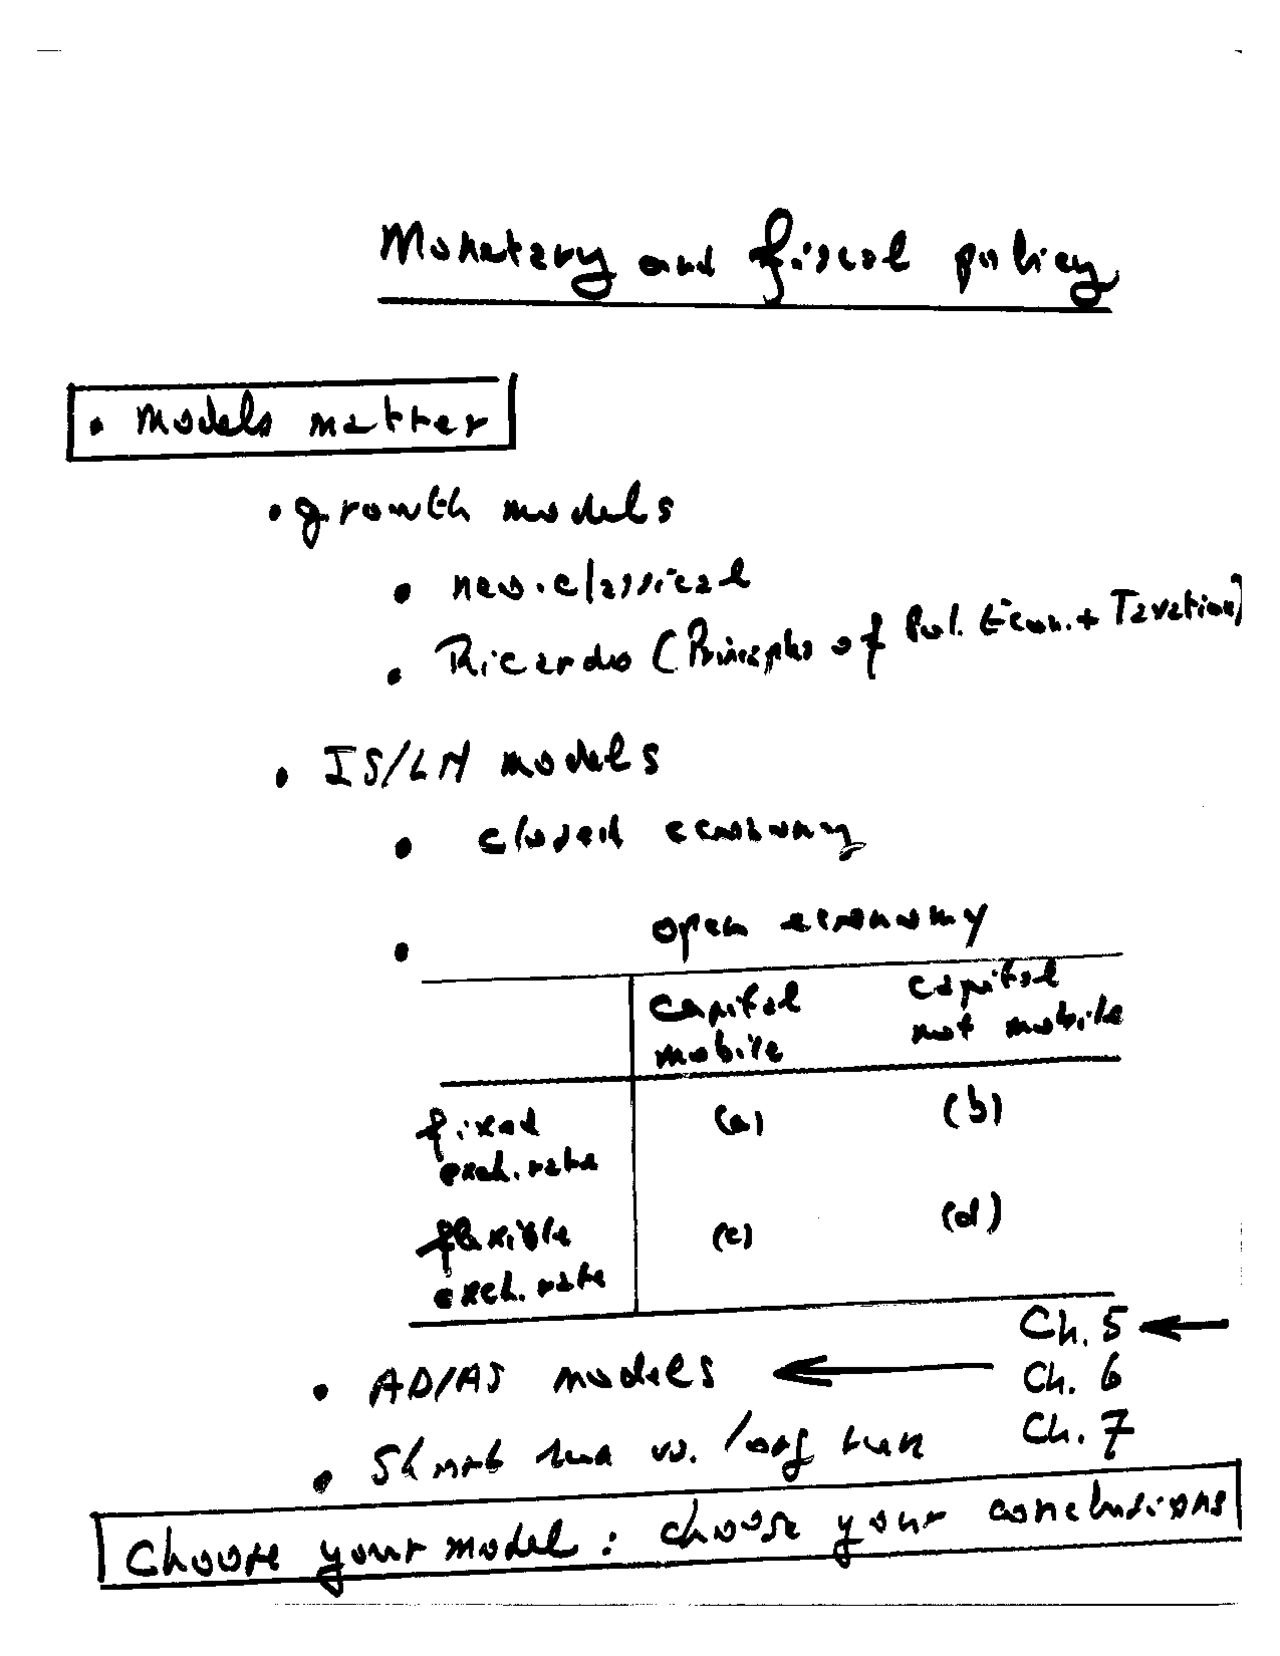 Monetary and fiscal policy
• Models matter
• growth models
• neo-classical
• Ricardo (Principles of Pol. Econ. + Taxation)
• IS/LM models
• closed economy
• open economy
capital mobile
capital not mobile
fixed exch. rate (a) (b)
flexible exch. rate (c) (d)
Ch. 5 ←
• AD/AS models ← Ch. 6
Ch. 7
• Short run vs. long run
Choose your model: choose your conclusions